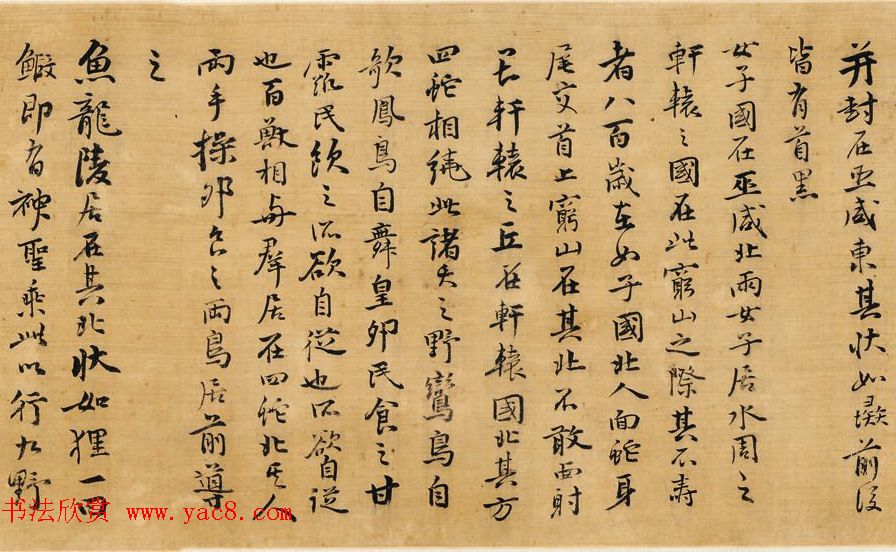 并封在巫咸東其状如彘前後
皆有首黑
女子國在巫咸北兩女子居水周之
軒轅之國在此窮山之際其不壽
者八百歲在女子國北人面蛇身
尾交首上窮山在其北不敢西射
畏軒轅之丘在軒轅國北其方
四蛇相繞此諸夭之野鸞鳥自
歌鳳鳥自舞皇卵民食之甘
露民飲之所欲自從也所欲自從
也百獸相與羣居在四蛇北其人
兩手操卵食之兩鳥居前導
之
魚龍陵居在其北状如狸一曰
鰕即有神聖乘此以行九野
书法欣赏 www.yac8.com